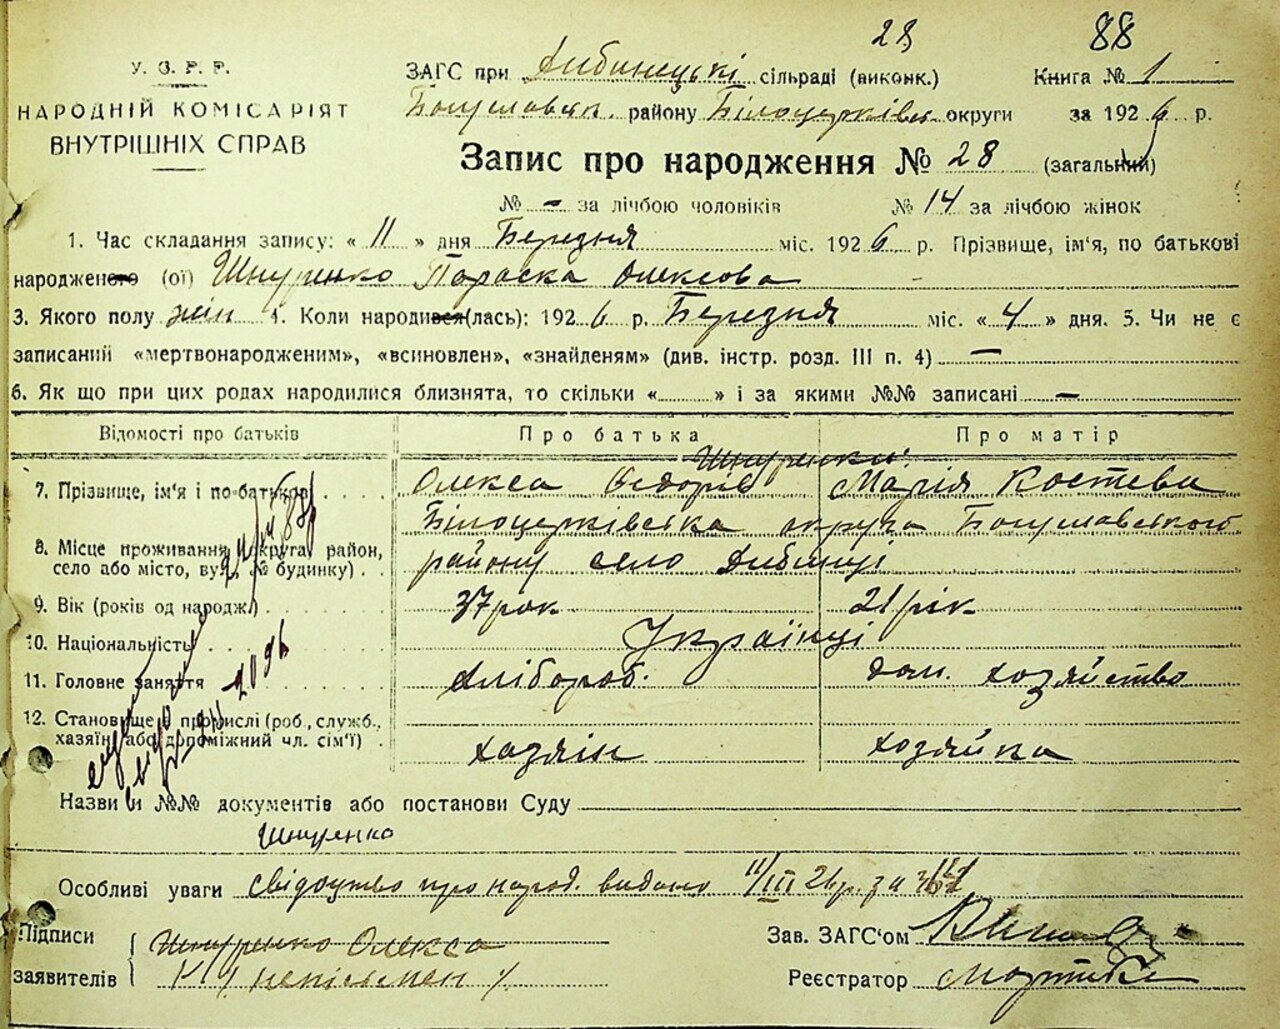 28 88
У. С. Р. Р.
НАРОДНІЙ КОМІСАРІЯТ
ВНУТРІШНІХ СПРАВ
ЗАГС при Дибинецькі сільраді (виконк.) Книга № 1
Богуславськ. району Білоцерківськ. округи за 1926 р.
Запис про народження № 28 (загальний)
№ – за лічбою чоловіків № 14 за лічбою жінок
1. Час складання запису: « 11 » дня Березня міс. 1926 р. Прізвище, ім'я, по батькові
народженого (ої) Шнуренко Параска Олексова
3. Якого полу жін 4. Коли народився(лась): 1926 р. Березня міс. « 4 » дня. 5. Чи не є
записаний «мертвонародженим», «всиновлен», «знайденям» (див. інстр. розд. III п. 4) —
6. Як що при цих родах народилися близнята, то скільки « » і за якими №№ записані —
Відомості про батьків Про батька Про матір
Шнуренки
7. Прізвище, ім'я і по-батькові Олекса Федорів Марія Костева
Білоцерківська округа Богуславського
8. Місце проживання (округа, район,
село або місто, вул., № будинку) району село Дибинці
9. Вік (років од народж.) 37 рок 21 рік
10. Національність Українці
11. Головне заняття хлібороб. дом. хозяйство
12. Становище в промислі (роб., служб.,
хазяїн або допоміжний чл. сім'ї) хозяін хозяйка
Назви й №№ документів або постанови Суду
Шнуренко
Особливі уваги свідоцтво про народ. видано 11/III 26 р. за №
Підписи Шнуренко Олекса Зав. ЗАГС'ом
заявителів неписьмен Реєстратор